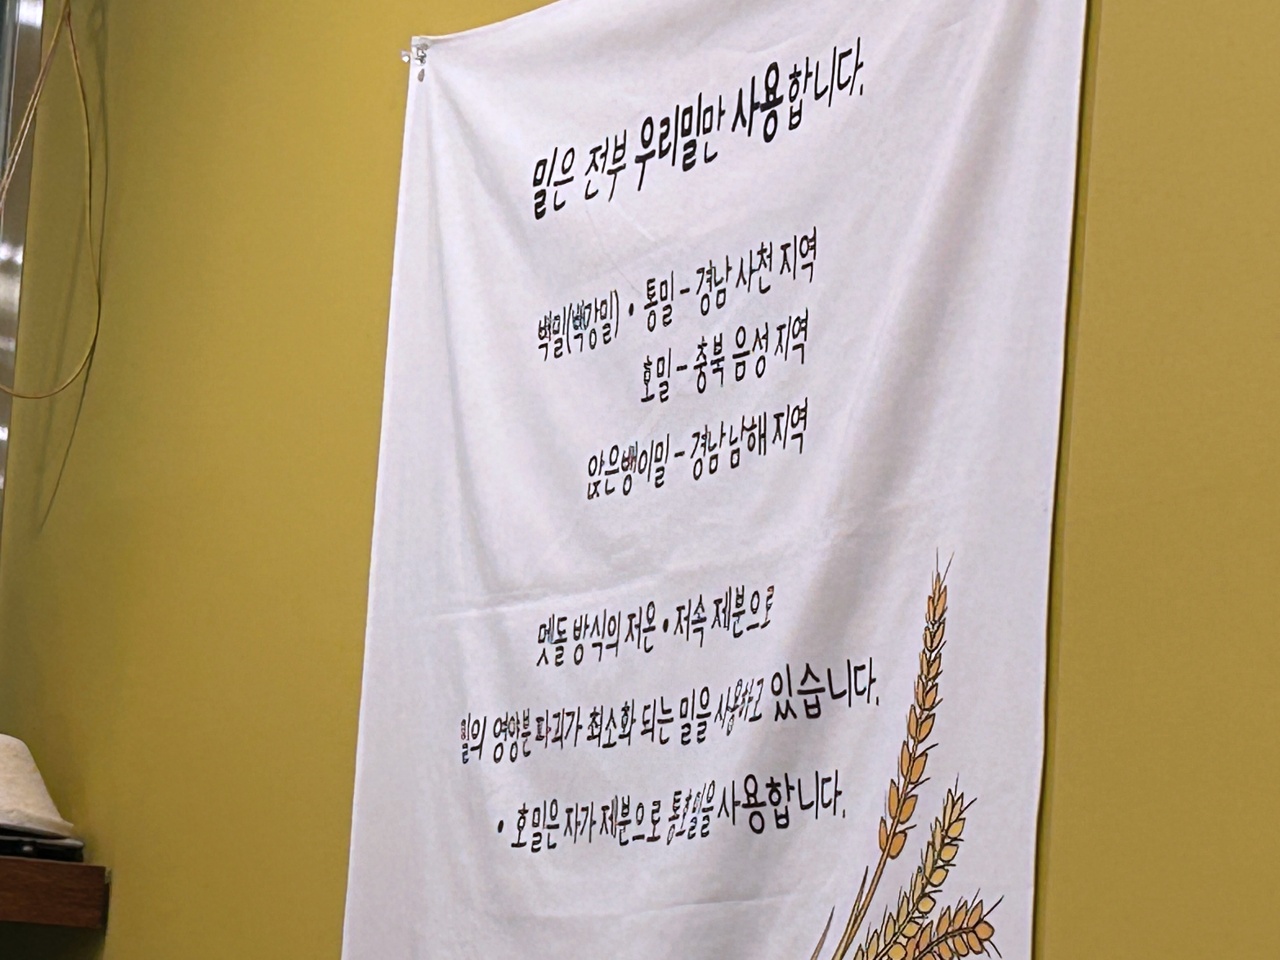 밀은 전부 우리밀만 사용합니다.
백밀(백강밀)•통밀-경남 사천 지역
호밀-충북 음성 지역
앉은뱅이밀-경남 남해 지역
멧돌 방식의 저온•저속 제분으로
밀의 영양분 파괴가 최소화 되는 밀을 사용하고 있습니다.
• 호밀은 자가 제분으로 사용합니다.